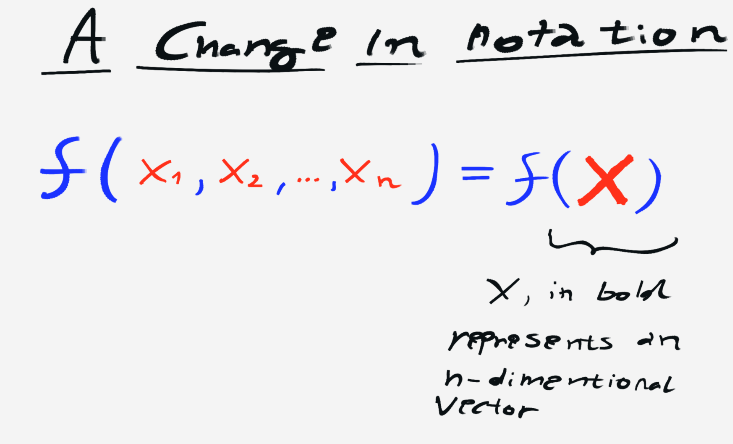 A Change in notation
f(x₁, x₂, ..., xₙ) = f(𝐱)
X, in bold
represents an
n-dimentional
Vector